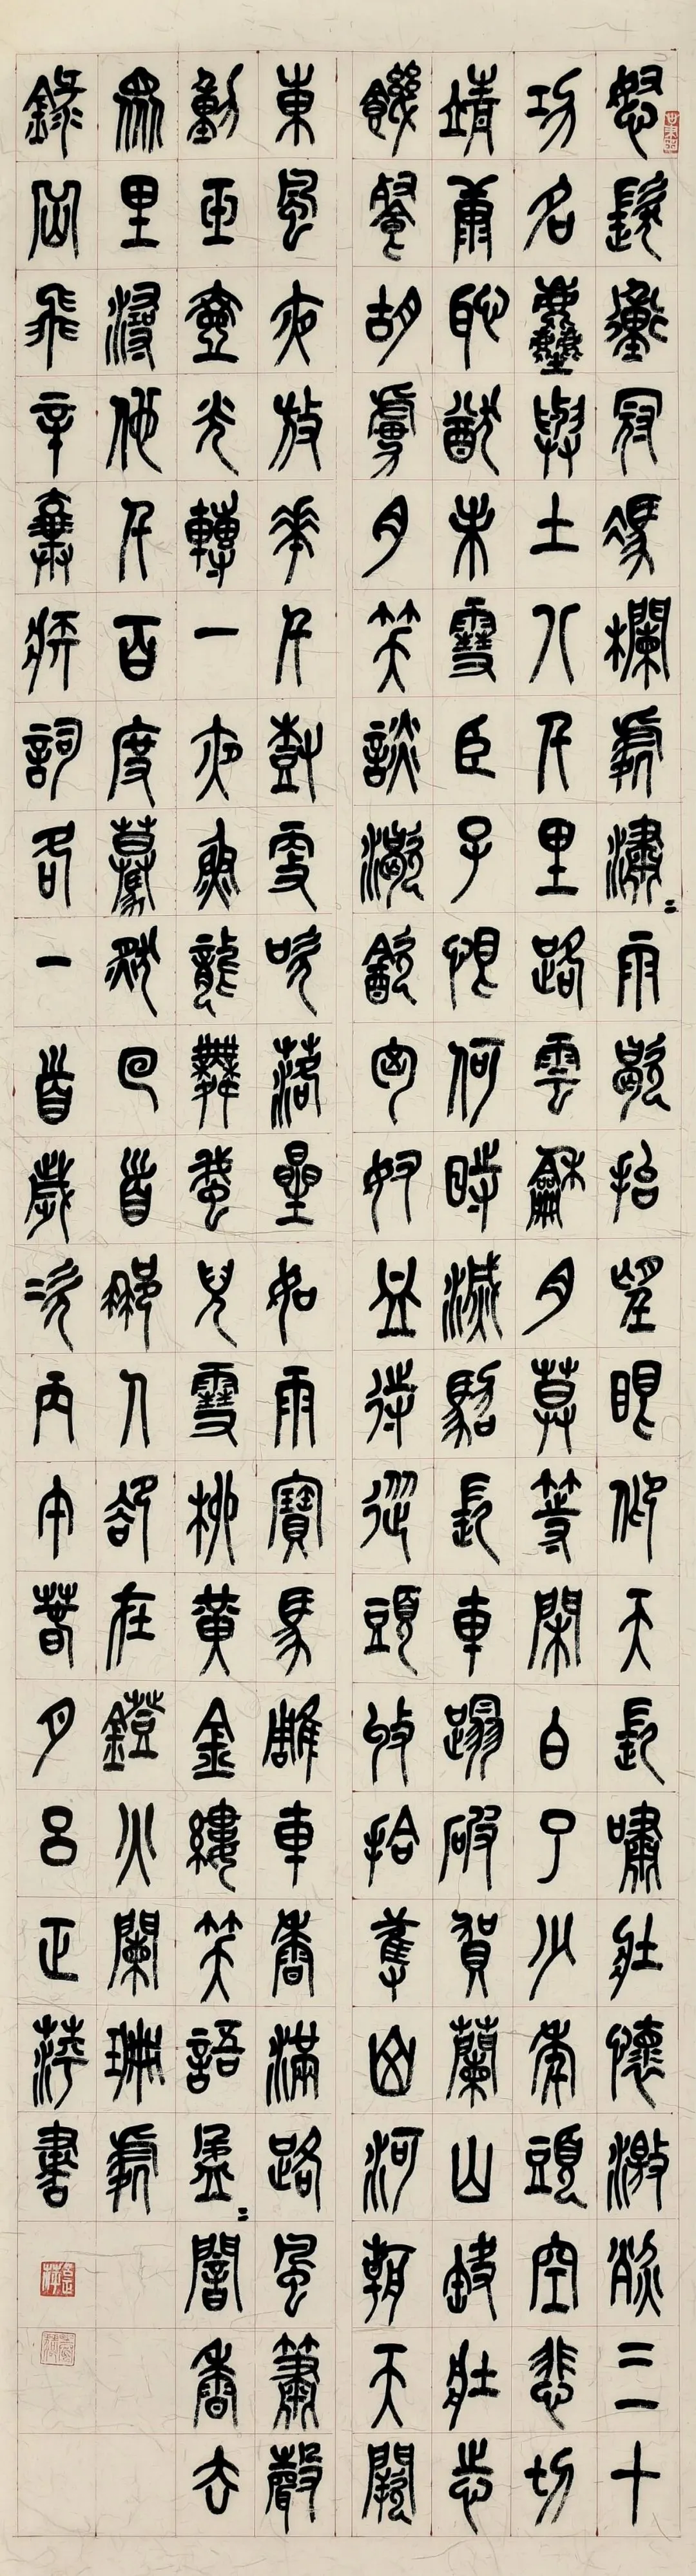 怒髮衝冠憑欄處瀟〻雨歇抬望眼仰天長嘯壯懷激烈三十
功名塵與土八千里路雲和月莫等閒白了少年頭空悲切
靖康恥猶未雪臣子恨何時滅駕長車踏破賀蘭山缺壯志
饑餐胡虜肉笑談渴飲匈奴血待從頭收拾舊山河朝天闕
東風夜放花千樹更吹落星如雨寶馬雕車香滿路風簫聲
動玉壺光轉一夜魚龍舞蛾兒雪柳黃金縷笑語盈〻闇香去
眾里尋他千百度驀然回首那人卻在鐙火闌珊處
錄岳飛辛棄疾詞各一首歲次丙午春月呂正萍書